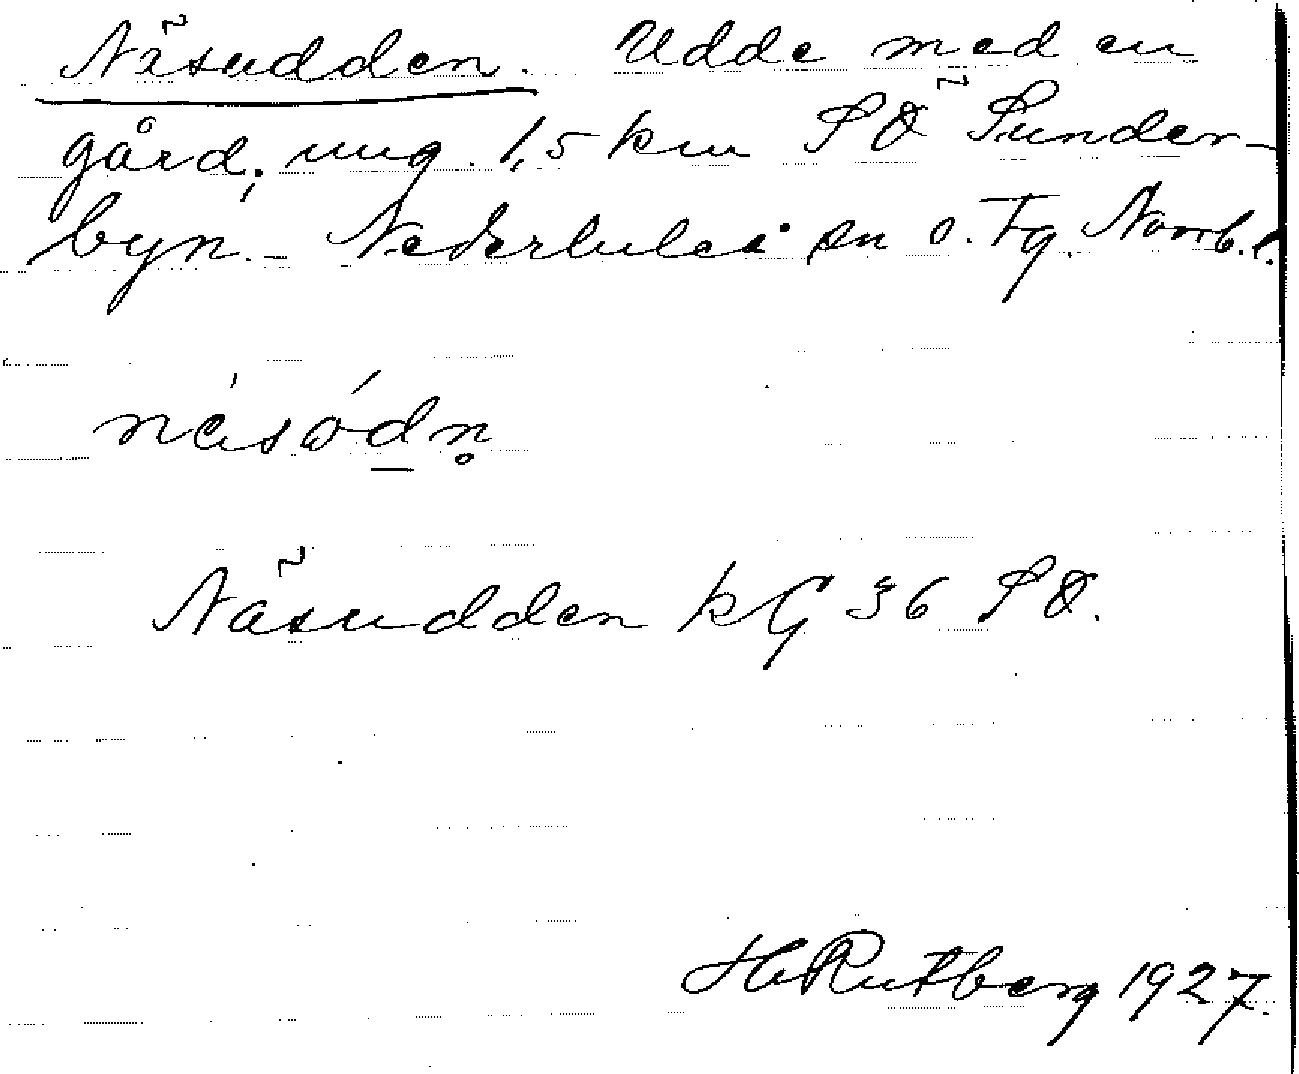 Näsudden. Udde med en
gård, ung. 1,5 km SÖ Sunder-
byn. - Nederluleå sn o. Tg. Norrb. l.
näsódn̥
Näsudden kG 36 SÖ.
H Rutberg 1927.